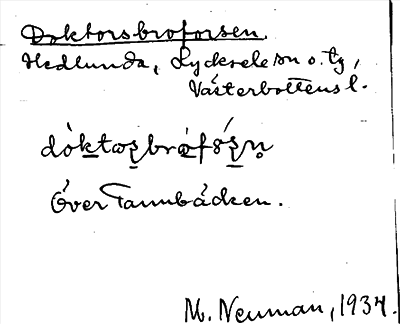 Doktorsbroforsen
Hedlunda, Lycksele sn o. tg,
Västerbottens l.
Över Tannbäcken.
M. Neuman, 1934.